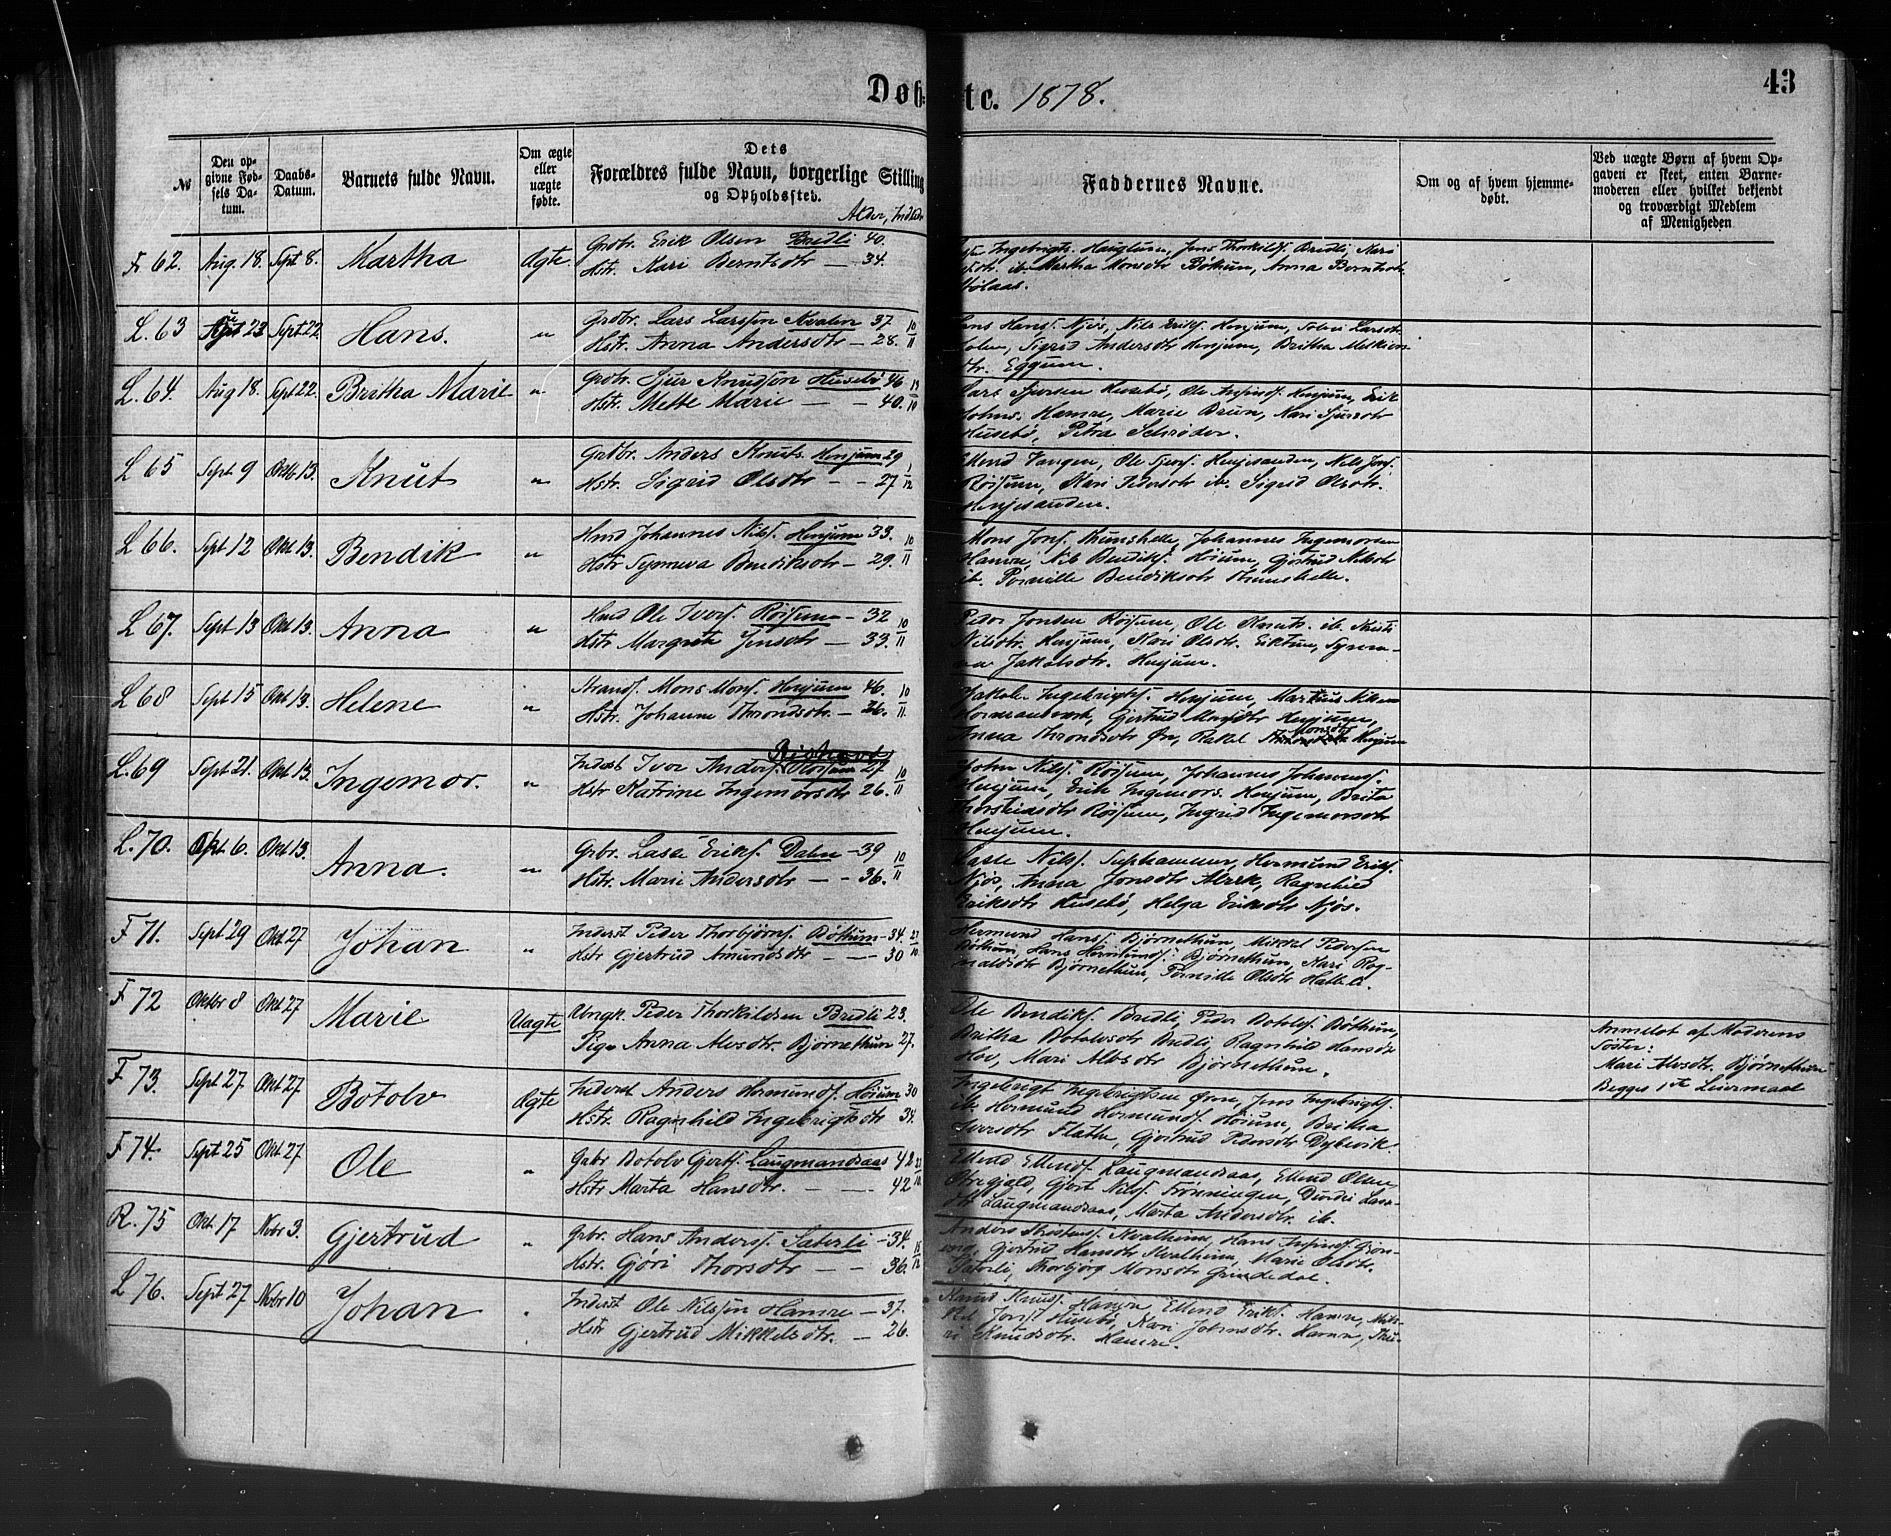 Døb- te. 1878.
43
№
Den op-
givne Fød-
sels Da-
tum.
Daabs-
Datum.
Barnets fulde Navn.
Om ægte
eller
uægte
fødte.
Dets
Forældres fulde Navn, borgerlige Stilling
og Opholdssted.
Alder,
Faddernes Navne.
Om og af hvem hjemme-
døbt.
Ved uægte Børn af hvem Op-
gaven er skeet, enten Barne-
moderen eller hvilket bekjendt
og troværdigt Medlem
af Menigheden
F 62. Aug. 18. Sept 8. Martha Ægte.
Grdbr. Erik Olsen Bredli 40.
Hstr. Kari Berntsdtr — 34.
Ingebrigts. Hauglum, Jens Thorkilds. Bredli, Kari
ib. Martha Monsdtr Bøthum, Anna Berntsdtr
L. 63 23 Sept 22 Hans. "
Grdbr. Lars Larssen Kvalen 37 10/11
Hstr. Anna Andersdtr — 28.
Hans Hans. Njøs, Nils Eriks. Henjum, Larsdtr
Sigrid Andersdtr Henjum, Britha
dtr. Eggum.
L. 64. Aug 18. Sept 22. Britha Marie "
Grdbr. Sjur Knudsen Husebø 46
Hstr. Mette Marie — — 40.
Lars Sjursen Husebø, Ole Henjum, Erik
Johns. Hamre, Marie Brun, Kari Sjursdtr
Husebø, Petra Schrøder.
L 65 Sept. 9 Oktb 13. Knut "
Grdbr. Anders Knuts. Henjum 29 1/12
Hstr. Sigrid Olsdtr — — 27
Ellend Vangen, Ole Sjurs. Henjesanden, Nils Jons.
Røisum, Kari Pedersdtr ib. Sigrid Olsdtr.
Henjesanden.
L 66. Sept 12 Okt 13. Bendik "
Hmd Johannes Nils. Henjum 33. 10/11
Hstr Synneva Bendiksdtr — 29.
Mons Jons. Thunshelle, Johannes Ingemorsen
Hamre, Nils Bendiks. Høium, Gjertrud Nilsdtr
ib. Pernille Bendiksdtr Thunshelle.
L 67. Sept 13 Okt 13. Anna "
Hmd Ole Ivers. Røisum — 32 10/11
Hstr Margrete Jensdtr — 33.
Peder Jonsen Røisum, Ole Knuts. ib. Kristi
Nilsdtr. Henjum, Kari Olsdtr. Eiktun, Synne-
va Jakobsdtr. Henjum.
L 68 Sept 15 Okt 13. Helene "
Strands. Mons Mons. Henjum 46. 10/11
Hstr. Johanne Throndsdtr. — 36.
Jakob Ingebrigts. Henjum, Markus Nilsen
Hermansverk, Gjertrud Monsdtr Henjum,
Anna Throndsdtr Øn, Rakel Monsdtr Henjum
L. 69 Sept 21. Okt 13. Ingemor. "
Inderst Iver Anders. Røisum 27 10/11
Hstr Katrine Ingemorsdtr 26.
John Nils. Røisum, Johannes Johannes.
Henjum, Erik Ingemors. Henjum, Brita
Thorsteinsdtr Røisum, Ingrid Ingemorsdtr
Henjum.
L. 70. Okt. 6. Okt 13. Anna. "
Grbr. Lasse Eriks. Dalen — 39 10/11
Hstr. Marie Andersdtr — — 36.
Lasse Nils. Suphammer, Hermund Eriks.
Njøs, Anna Jonsdtr, Ragnhild
Eriksdtr Husebø, Helga Eriksdtr Njøs.
F 71. Sept 29 Okt 27 Johan "
Inderst Peder Thorbjørns. Bøthum — 34.
Hstr Gjertrud Amundsdtr — — 30
Hermund Hans. Bjørnethun, Mikkel Pedersen
Bøthum, Hans Hermunds. Bjørnethun, Kari Rog-
naldsdtr Bjørnethun, Pernille Olsdtr
F 72 Oktbr 8 Okt 27 Marie Uægte
Ungk. Peder Thorkildsen Bredli 23.
Pige Anna Alvsdtr. Bjørnethun 27.
Ole Bendiks. Bredli, Peder Botolvs. Bøthum,
Britha Botolvsdtr Bredli, Ragnhild Hansdtr
Mari Alvsdtr Bjørnethun.
Anmeldt af Moderens
Søster:
Mari Alvsdtr. Bjørnethun
Begges 1ste Leiermaal
F 73. Sept 27 Okt 27 Botolv Ægte
Inderst Anders Hermunds. Høium 30
Hstr. Ragnhild Ingebrigtsdtr 34.
Ingebrigt Ingebrigtsen Øren, Jens Ingebrigts.
ib. Hermund Hermunds. Høium, Britha
Iversdtr Flathe, Gjertrud Pedersdtr Dybevik.
F 74. Sept 25 Okt 27 Ole "
Grbr Botolv Gjerts. Laugmandsaas 42
Hstr Marta Hansdtr. — — 42
Ellend Ellends. Laugmandsaas, Ellend Olsen
Gjert Nils. Frønningen, Durdei
Laugmandsaas, Marta Andersdtr. ib.
R. 75 Okt 17 Nvbr 3. Gjertrud "
Grbr. Hans Anders. Sæterli — 34.
Hstr. Gjøri Thorsdtr — — 36.
Anders Kvalheim, Hans Grøn-
Gjertrud Hansdtr Kvalheim, Marie Olsdtr.
Sæterli, Thorbjørg Monsdtr Grindedal.
L 76. Sept 27 Nvbr 10 Johan "
Inderst Ole Nilssen Hamre — 37.
Hstr Gjertrud Mikkelsdtr. — 26.
Knud Knuds. Hamre, Ellend Eriks. Hamre,
Jons. Husebø, Kari Johnsdtr. Hamre, Thu-
ri Knudsdtr. Hamre.